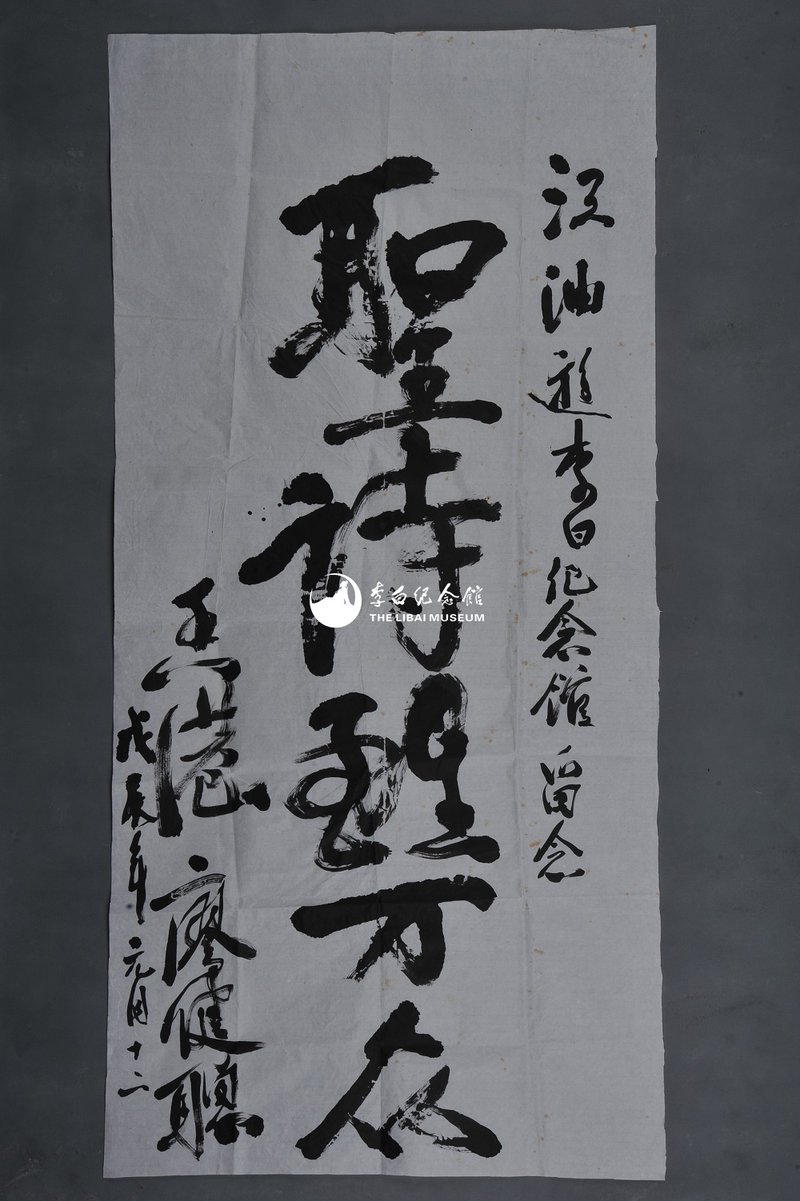 江油遊李白纪念館留念
聖詩醒万众
香港廖健聰
戊辰年元月十二
李白纪念館
THE LIBAI MUSEUM